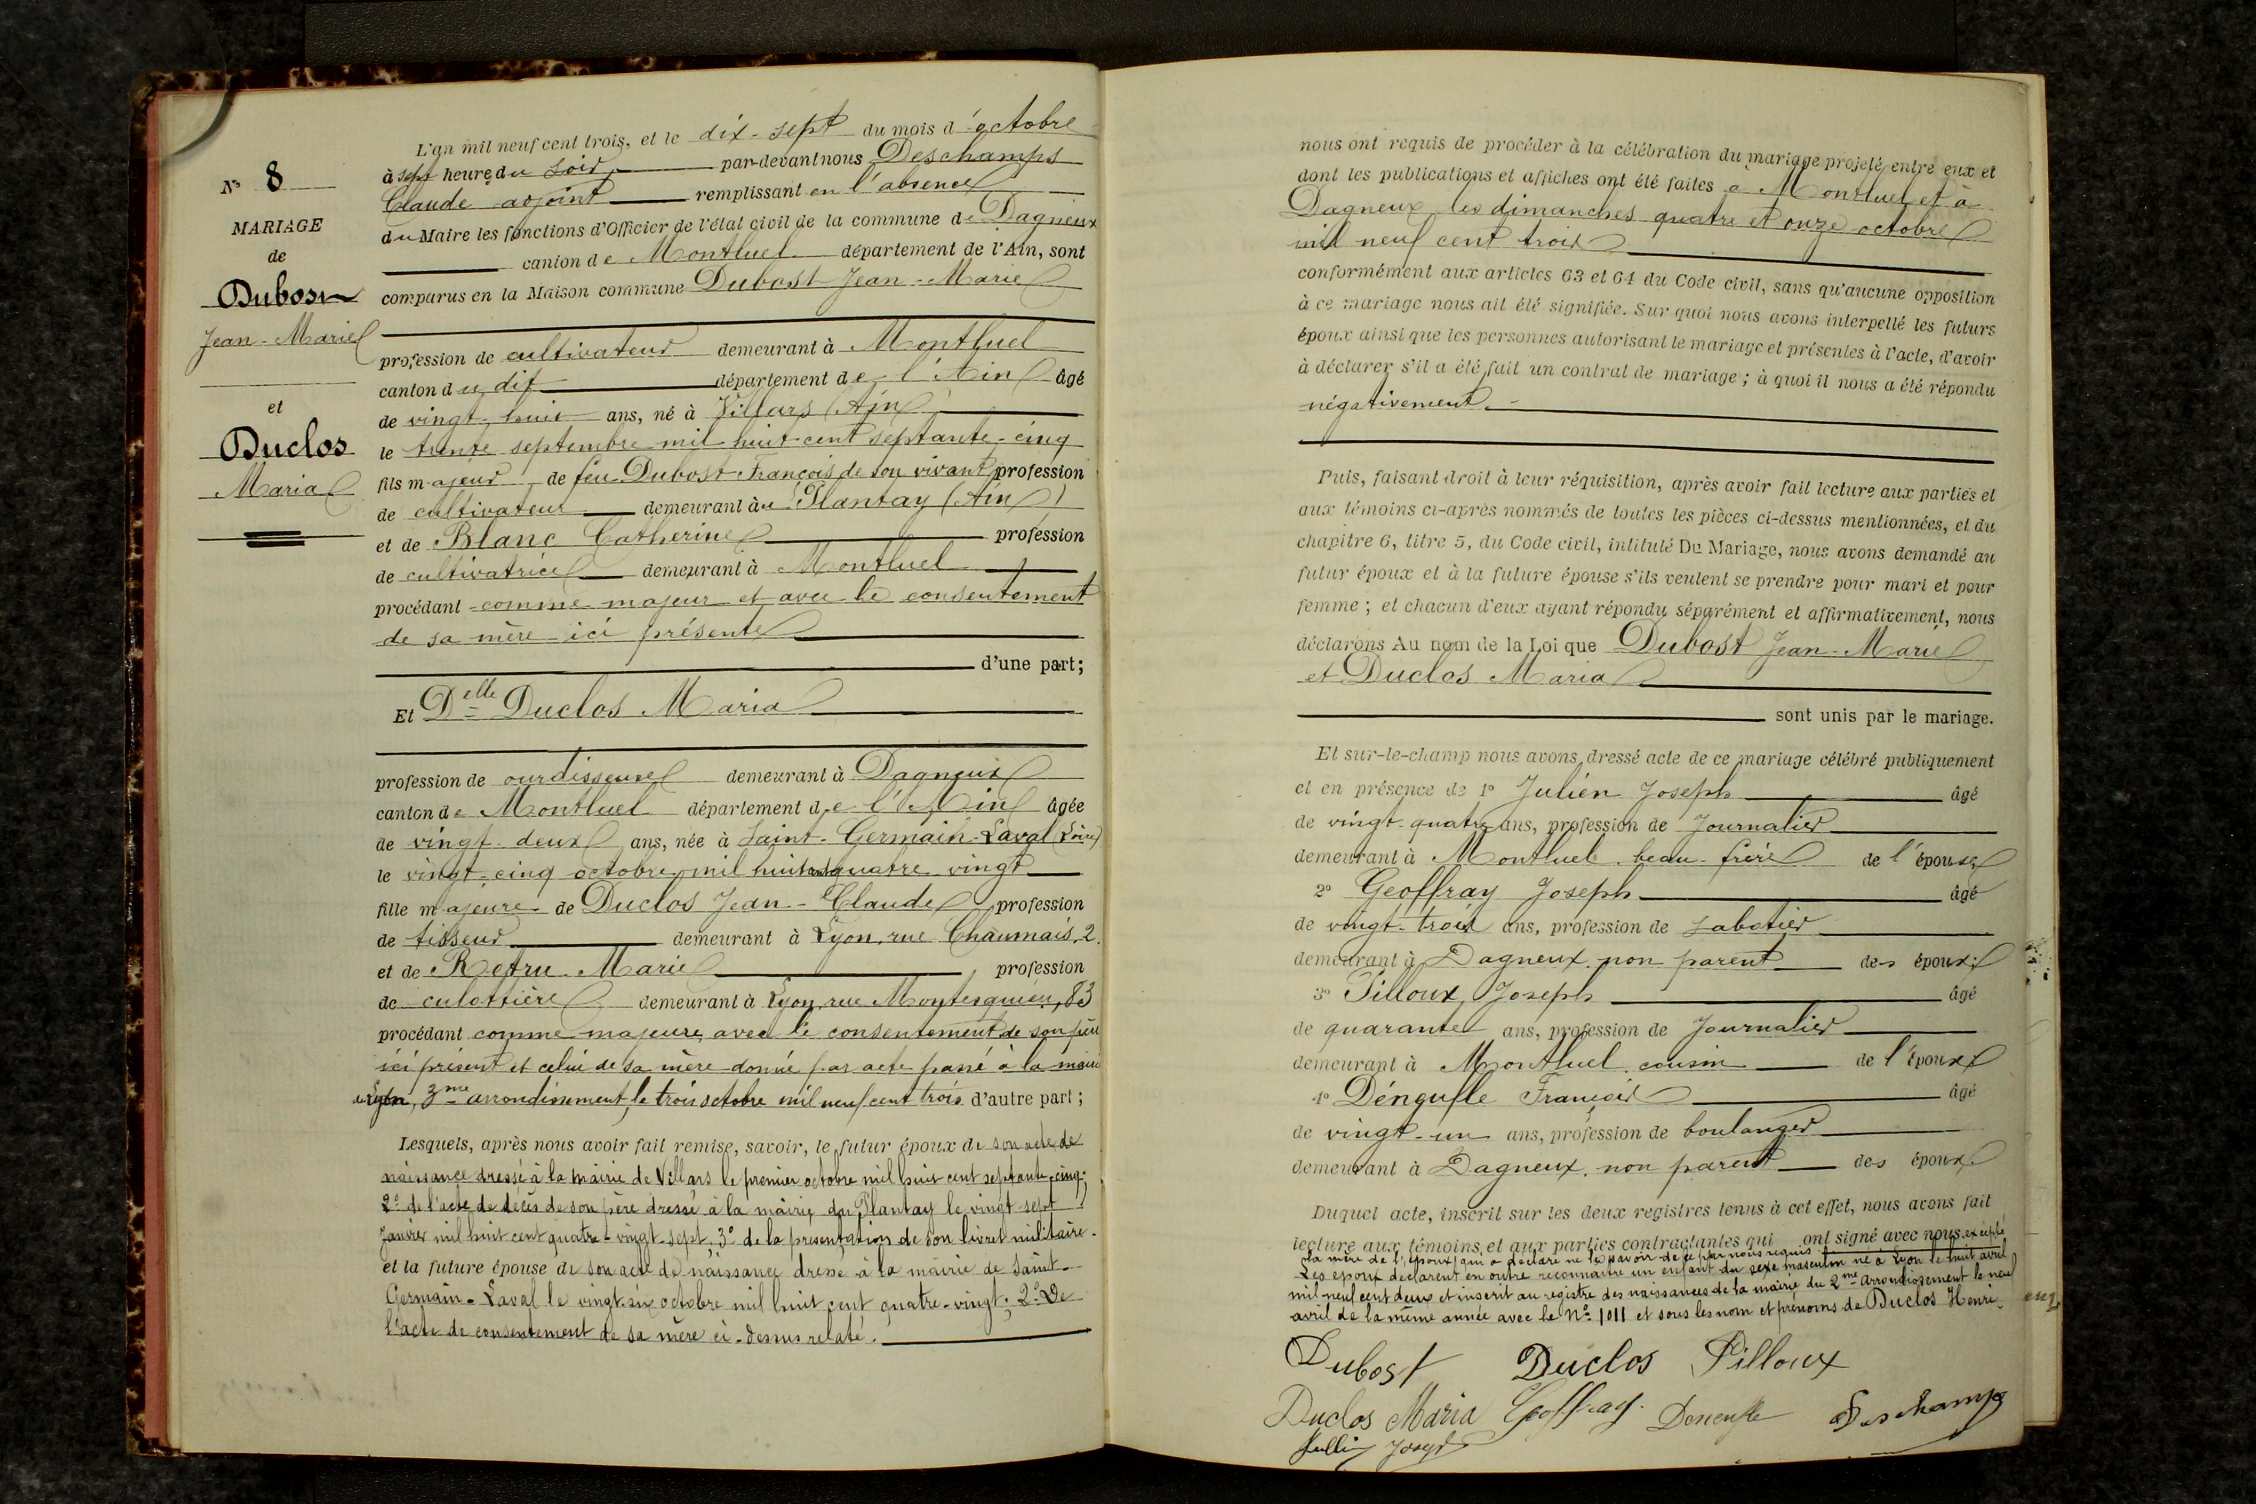 N° 8
MARIAGE
de
Dubost
Jean-Marie
et
Duclos
Maria
L'an mil neuf cent trois, et le dix-sept du mois d'octobre
à sept heure du soir par-devant nous Deschamps
Claude adjoint remplissant en l'absence
du Maire les fonctions d'Officier de l'état civil de la commune de Dagneux
canton de Montluel département de l'Ain, sont
comparus en la Maison commune Dubost Jean-Marie
profession de cultivateur demeurant à Montluel
canton du dit département de l'Ain âgé
de vingt-huit ans, né à Villars (Ain)
le trente septembre mil huit-cent septante-cinq
fils majeur de feu Dubost François de son vivant profession
de cultivateur demeurant au Plantay (Ain)
et de Blanc Catherine profession
de cultivatrice demeurant à Montluel
procédant comme majeur et avec le consentement
de sa mère ici présente
d'une part;
Et Delle Duclos Maria
profession de ourdisseuse demeurant à Dagneux
canton de Montluel département de l'Ain âgée
de vingt-deux ans, née à Saint-Germain-Laval (Loire)
le vingt-cinq octobre mil huit cent quatre vingt
fille majeure de Duclos Jean-Claude profession
de tisseur demeurant à Lyon, rue Chaumais, 2.
et de Refru Marie profession
de culottière demeurant à Lyon, rue Montesquieu, 83
procédant comme majeure, avec le consentement de son père
ici présent et celui de sa mère donné par acte passé à la mairie
de Lyon, 3me arrondissement, le trois octobre mil neuf cent trois d'autre part;
Lesquels, après nous avoir fait remise, savoir, le futur époux de son acte de
naissance dressé à la mairie de Villars le premier octobre mil huit cent septante-cinq;
2° de l'acte de décès de son père dressé à la mairie du Plantay le vingt-sept
Janvier mil huit cent quatre-vingt-sept; 3° de la présentation de son livret militaire.
et la future épouse de son acte de naissance dressé à la mairie de Saint-
Germain-Laval le vingt-six octobre mil huit cent quatre-vingt; 2° De
l'acte de consentement de sa mère ci-dessus relaté.
nous ont requis de procéder à la célébration du mariage projeté entre eux et
dont les publications et affiches ont été faites à Montluel et à
Dagneux les dimanches quatre et onze octobre
mil neuf cent trois
conformément aux articles 63 et 64 du Code civil, sans qu'aucune opposition
à ce mariage nous ait été signifiée. Sur quoi nous avons interpellé les futurs
époux ainsi que les personnes autorisant le mariage et présentes à l'acte, d'avoir
à déclarer s'il a été fait un contrat de mariage; à quoi il nous a été répondu
négativement.
Puis, faisant droit à leur réquisition, après avoir fait lecture aux parties et
aux témoins ci-après nommés de toutes les pièces ci-dessus mentionnées, et du
chapitre 6, titre 5, du Code civil, intitulé Du Mariage, nous avons demandé au
futur époux et à la future épouse s'ils veulent se prendre pour mari et pour
femme; et chacun d'eux ayant répondu séparément et affirmativement, nous
déclarons Au nom de la Loi que Dubost Jean-Marie
et Duclos Maria
sont unis par le mariage.
Et sur-le-champ nous avons dressé acte de ce mariage célébré publiquement
et en présence de 1° Julien Joseph âgé
de vingt-quatre ans, profession de Journalier
demeurant à Montluel beau-frère de l'épouse
2° Geoffray Joseph âgé
de vingt-trois ans, profession de sabotier
demeurant à Dagneux non parent des époux;
3° Pilloux Joseph âgé
de quarante ans, profession de Journalier
demeurant à Montluel, cousin de l'époux
4° Dénqufle François âgé
de vingt-un ans, profession de boulanger
demeurant à Dagneux, non parent des époux
Duquel acte, inscrit sur les deux registres tenus à cet effet, nous avons fait
lecture aux témoins et aux parties contractantes qui ont signé avec nous excepté
la mère de l'époux qui a déclaré ne le savoir de ce par nous requis.
Les époux déclarent en outre reconnaître un enfant du sexe masculin né à Lyon le huit avril
mil neuf cent deux et inscrit au registre des naissances de la mairie du 2me arrondissement le neuf
avril de la même année avec le N° 1011 et sous les nom et prénoms de Duclos Henri.
Dubost Duclos Pilloux
Duclos Maria Geoffray Deschamps
Jullin Joseph